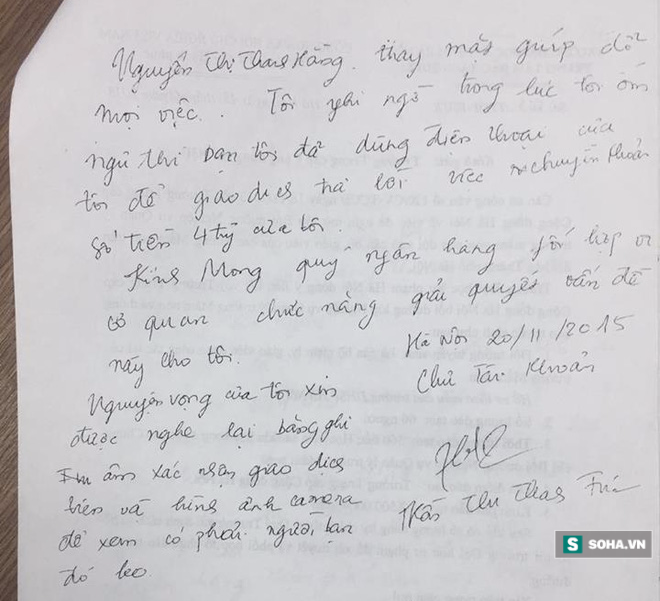 Nguyễn Thị Thu Hằng. thay mặt giúp đỡ
mọi việc. Tôi nghi ngờ trong lúc tôi ốm
ngủ thì bạn tôi đã dùng điện thoại của
tôi để giao dịch trả lời việc chuyển khoản
số tiền 4 tỷ của tôi.
Kính Mong quý ngân hàng phối hợp
cơ quan chức năng giải quyết vấn đề
này cho tôi.
Hà Nội 20/11/2015
Chủ Tài Khoản
Nguyện vọng của tôi xin
được nghe lại băng ghi
âm xác nhận giao dịch
trên và hình ảnh camera
để xem có phải người bạn
đó
Trần Thị Thanh
S SOHA.VN